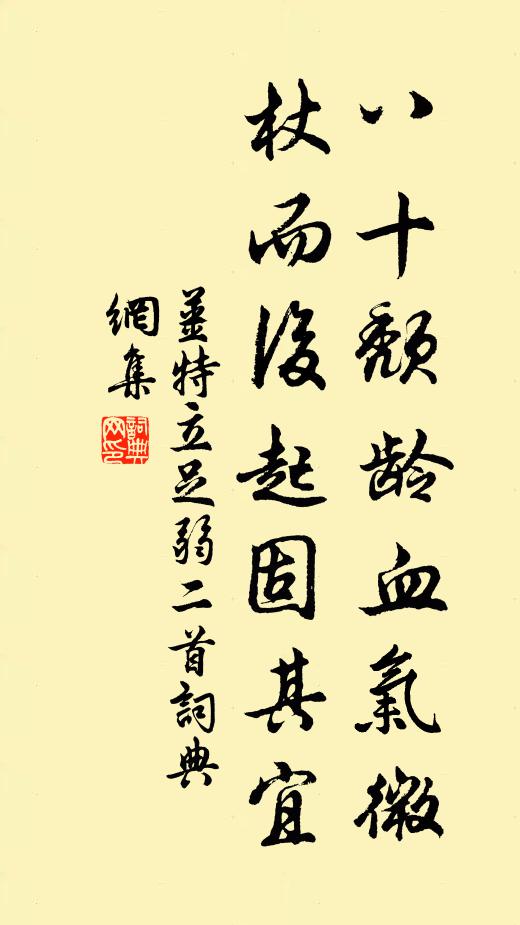 八十頹齡血氣微
杖而後起固其宜
姜特立足弱二首詞典
網集
詞典
网印